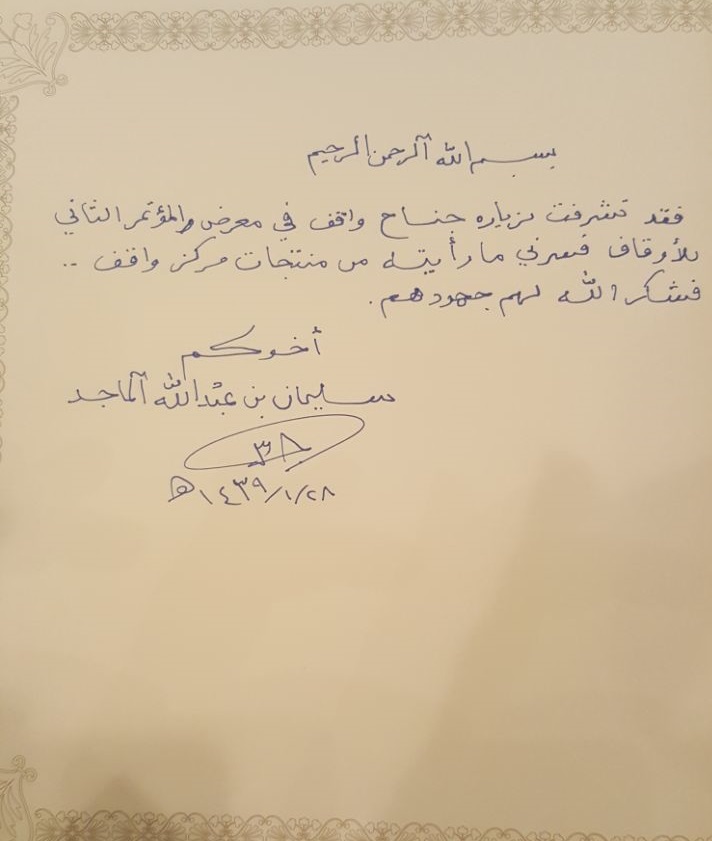 بسم الله الرحمن الرحيم
فقد تشرفت بزياره جناح واقف في معرض والمؤتمر الثاني
للأوقاف فسرني ما رأيته من منتجات مركز واقف ..
فشكر الله لهم جهودهم.
أخوكم
سليمان بن عبدالله الماجد
١٤٣٩/١/٢٨هـ